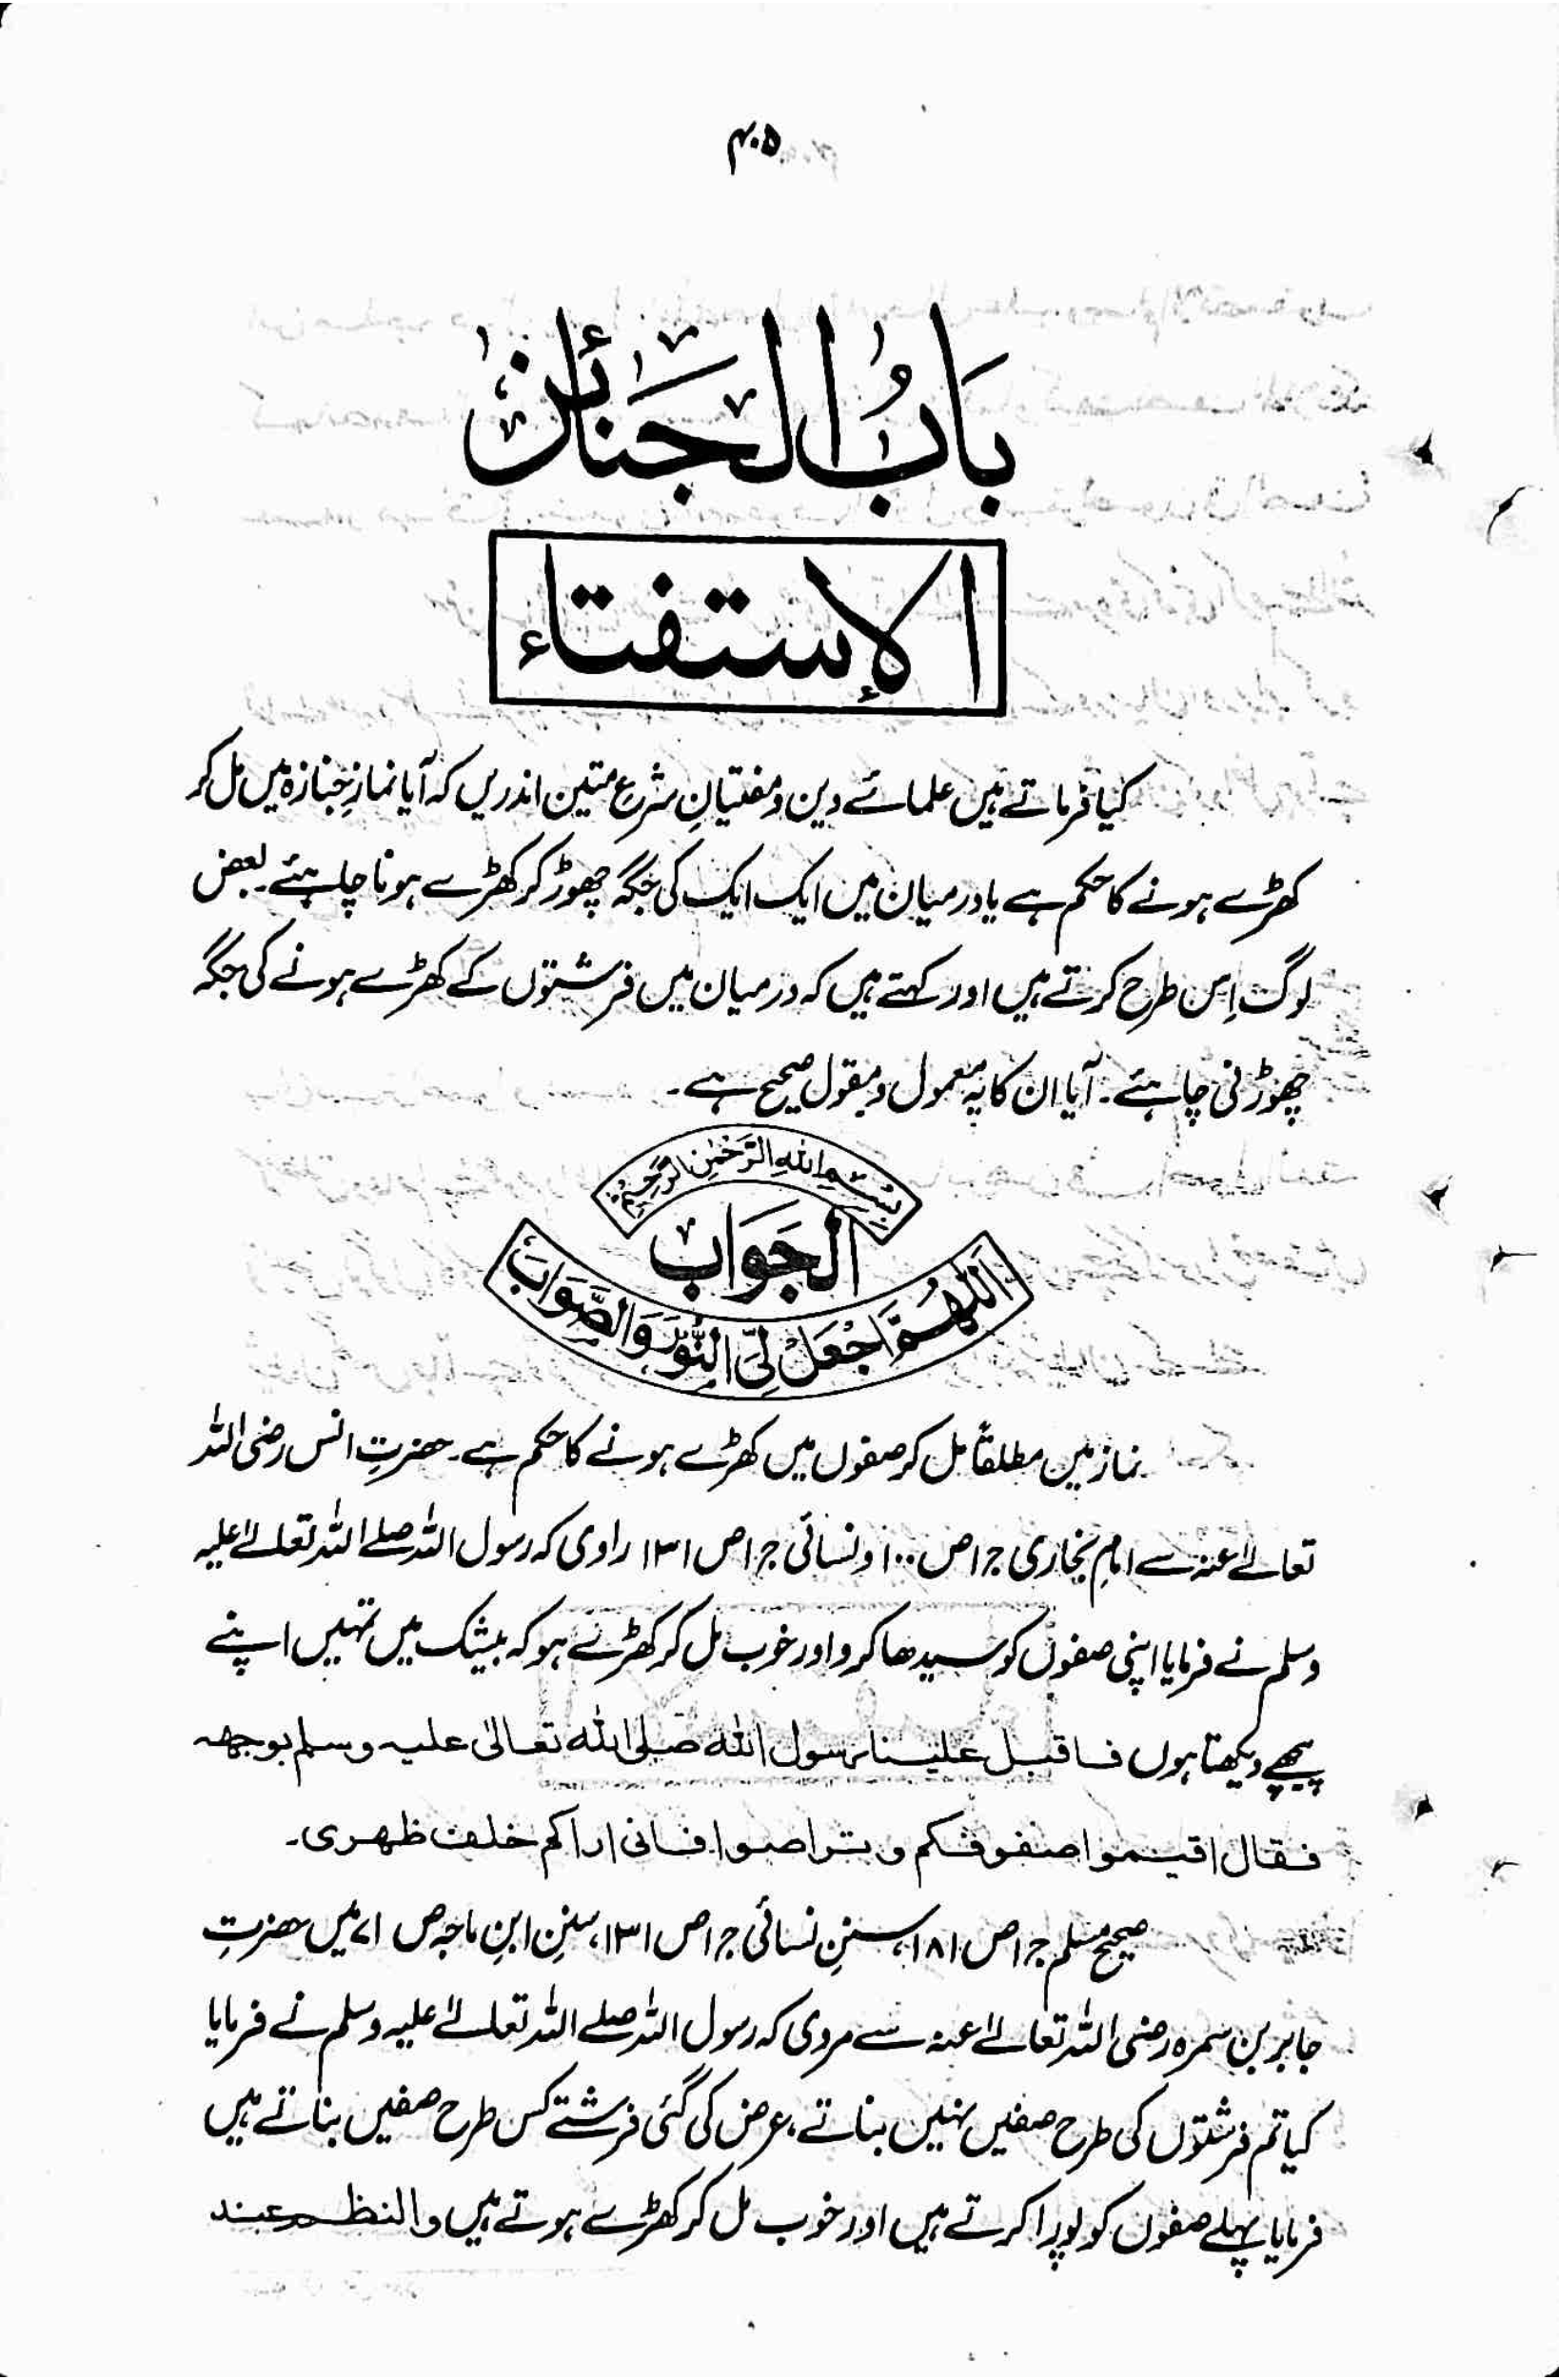 ۴۰۵
بَابُ الجَنَائِز
الإستفتاء
کیا فرماتے ہیں علمائے دین و مفتیانِ شرع متین اندریں کہ آیا نمازِ جنازہ میں مل کر
کھڑے ہونے کا حکم ہے یا درمیان میں ایک ایک کی جگہ چھوڑ کر کھڑے ہونا چاہئے۔ بعض
لوگ اِس طرح کرتے ہیں اور کہتے ہیں کہ درمیان میں فرشتوں کے کھڑے ہونے کی جگہ
چھوڑنی چاہئے۔ آیا ان کا یہ معمول و مقول صحیح ہے۔
بِسْمِ اللهِ الرَّحْمٰنِ الرَّحِيْمِ
الجَوَاب
اَللّٰهُمَّ اجْعَلْ لِيَ النُّوْرَ وَالصَّوَابَ
نماز میں مطلقاً مل کر صفوں میں کھڑے ہونے کا حکم ہے۔ حضرتِ انس رضی اللہ
تعالےٰ عنہ سے امامِ بخاری جراص ۱۰۰ و نسائی جراص ۱۳۱ راوی کہ رسول اللہ صلے اللہ تعالےٰ علیہ
وسلم نے فرمایا اپنی صفوں کو سیدھا کرو اور خوب مل کر کھڑے ہو کہ بیشک میں تمہیں اپنے
پیچھے دیکھتا ہوں فاقبل علینا رسول اللہ صلی اللہ تعالیٰ علیہ وسلم بوجھہ
فقال اقیموا صفوفکم و تراصوا فانی اراکم خلف ظھری۔
صحیح مسلم جراص ۱۸۱، سننِ نسائی جراص ۱۳۱، سننِ ابنِ ماجہ ص ۷۱ میں حضرتِ
جابر بن سمرہ رضی اللہ تعالےٰ عنہ سے مروی کہ رسول اللہ صلے اللہ تعالےٰ علیہ وسلم نے فرمایا
کیا تم فرشتوں کی طرح صفیں نہیں بناتے، عرض کی گئی فرشتے کس طرح صفیں بناتے ہیں
فرمایا پہلے صفوں کو پورا کرتے ہیں اور خوب مل کر کھڑے ہوتے ہیں والنظم عند